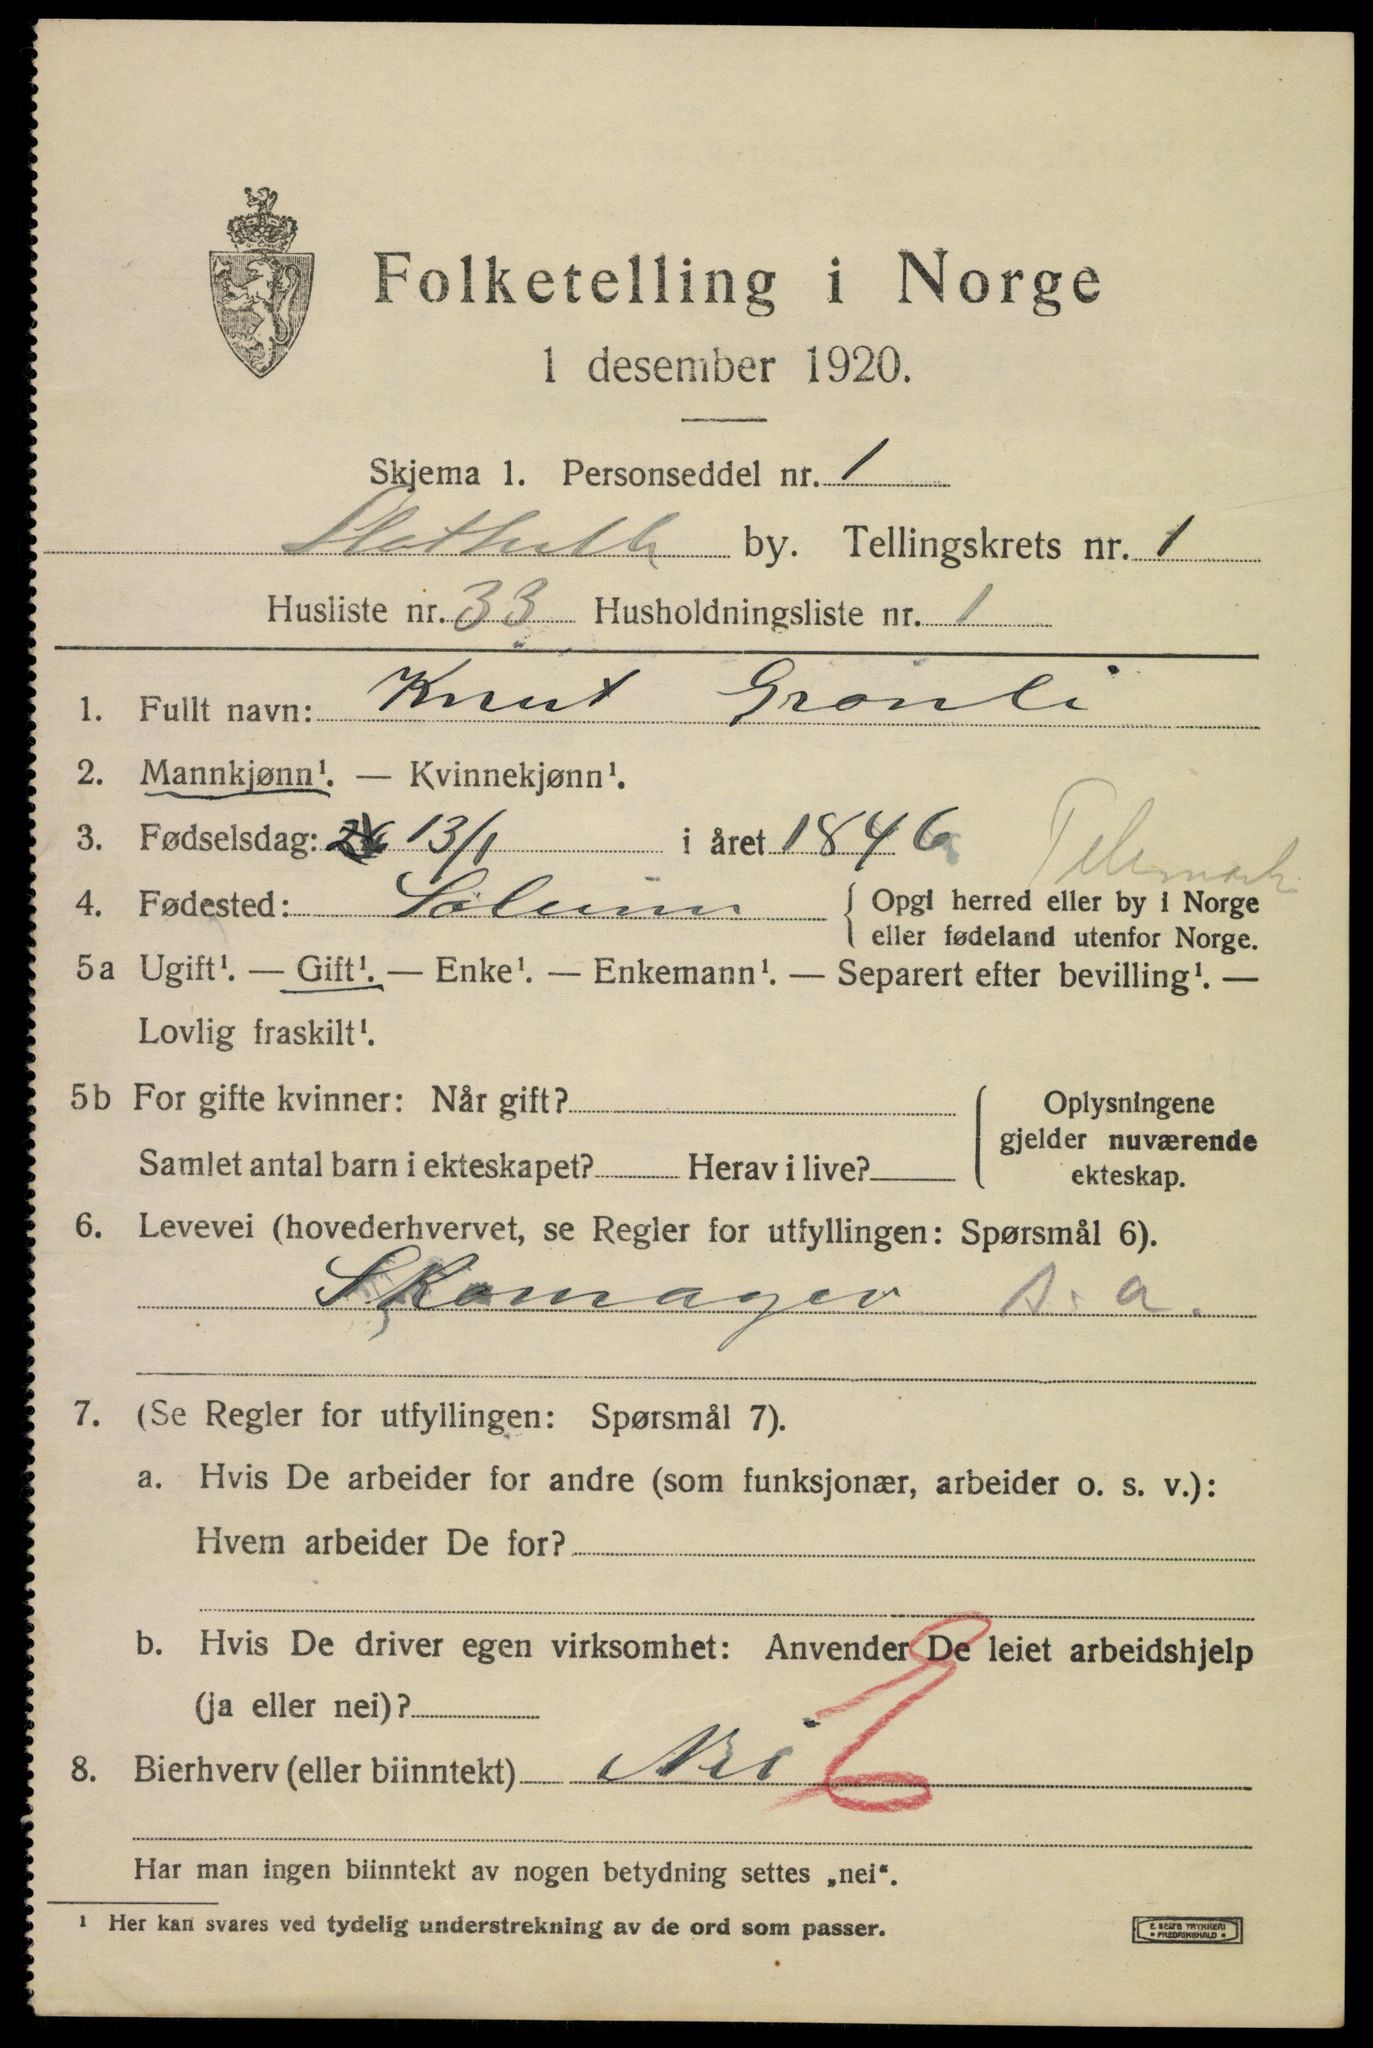 Folketelling i Norge
1 desember 1920.
Skjema 1. Personseddel nr. 1
Stathelle by. Tellingskrets nr. 1
Husliste nr. 33 Husholdningsliste nr. 1
1. Fullt navn: Knut Grönli
2. Mannkjønn¹. — Kvinnekjønn¹.
3. Fødselsdag: 13/1 i året 1846
Telemark
4. Fødested: Solum { Opgi herred eller by i Norge
eller fødeland utenfor Norge.
5a Ugift¹. — Gift¹. — Enke¹. — Enkemann¹. — Separert efter bevilling¹. —
Lovlig fraskilt¹.
5b For gifte kvinner: Når gift?
Samlet antal barn i ekteskapet? Herav i live?
{ Oplysningene
gjelder nuværende
ekteskap.
6. Levevei (hovederhvervet, se Regler for utfyllingen: Spørsmål 6).
Skomager s. a.
7. (Se Regler for utfyllingen: Spørsmål 7).
a. Hvis De arbeider for andre (som funksjonær, arbeider o. s. v.):
Hvem arbeider De for?
b. Hvis De driver egen virksomhet: Anvender De leiet arbeidshjelp
(ja eller nei)?
8. Bierhverv (eller biinntekt) Nei
Har man ingen biinntekt av nogen betydning settes „nei“.
¹ Her kan svares ved tydelig understrekning av de ord som passer.
E. SEMS TRYKKERI
• FREDRIKSHALD •